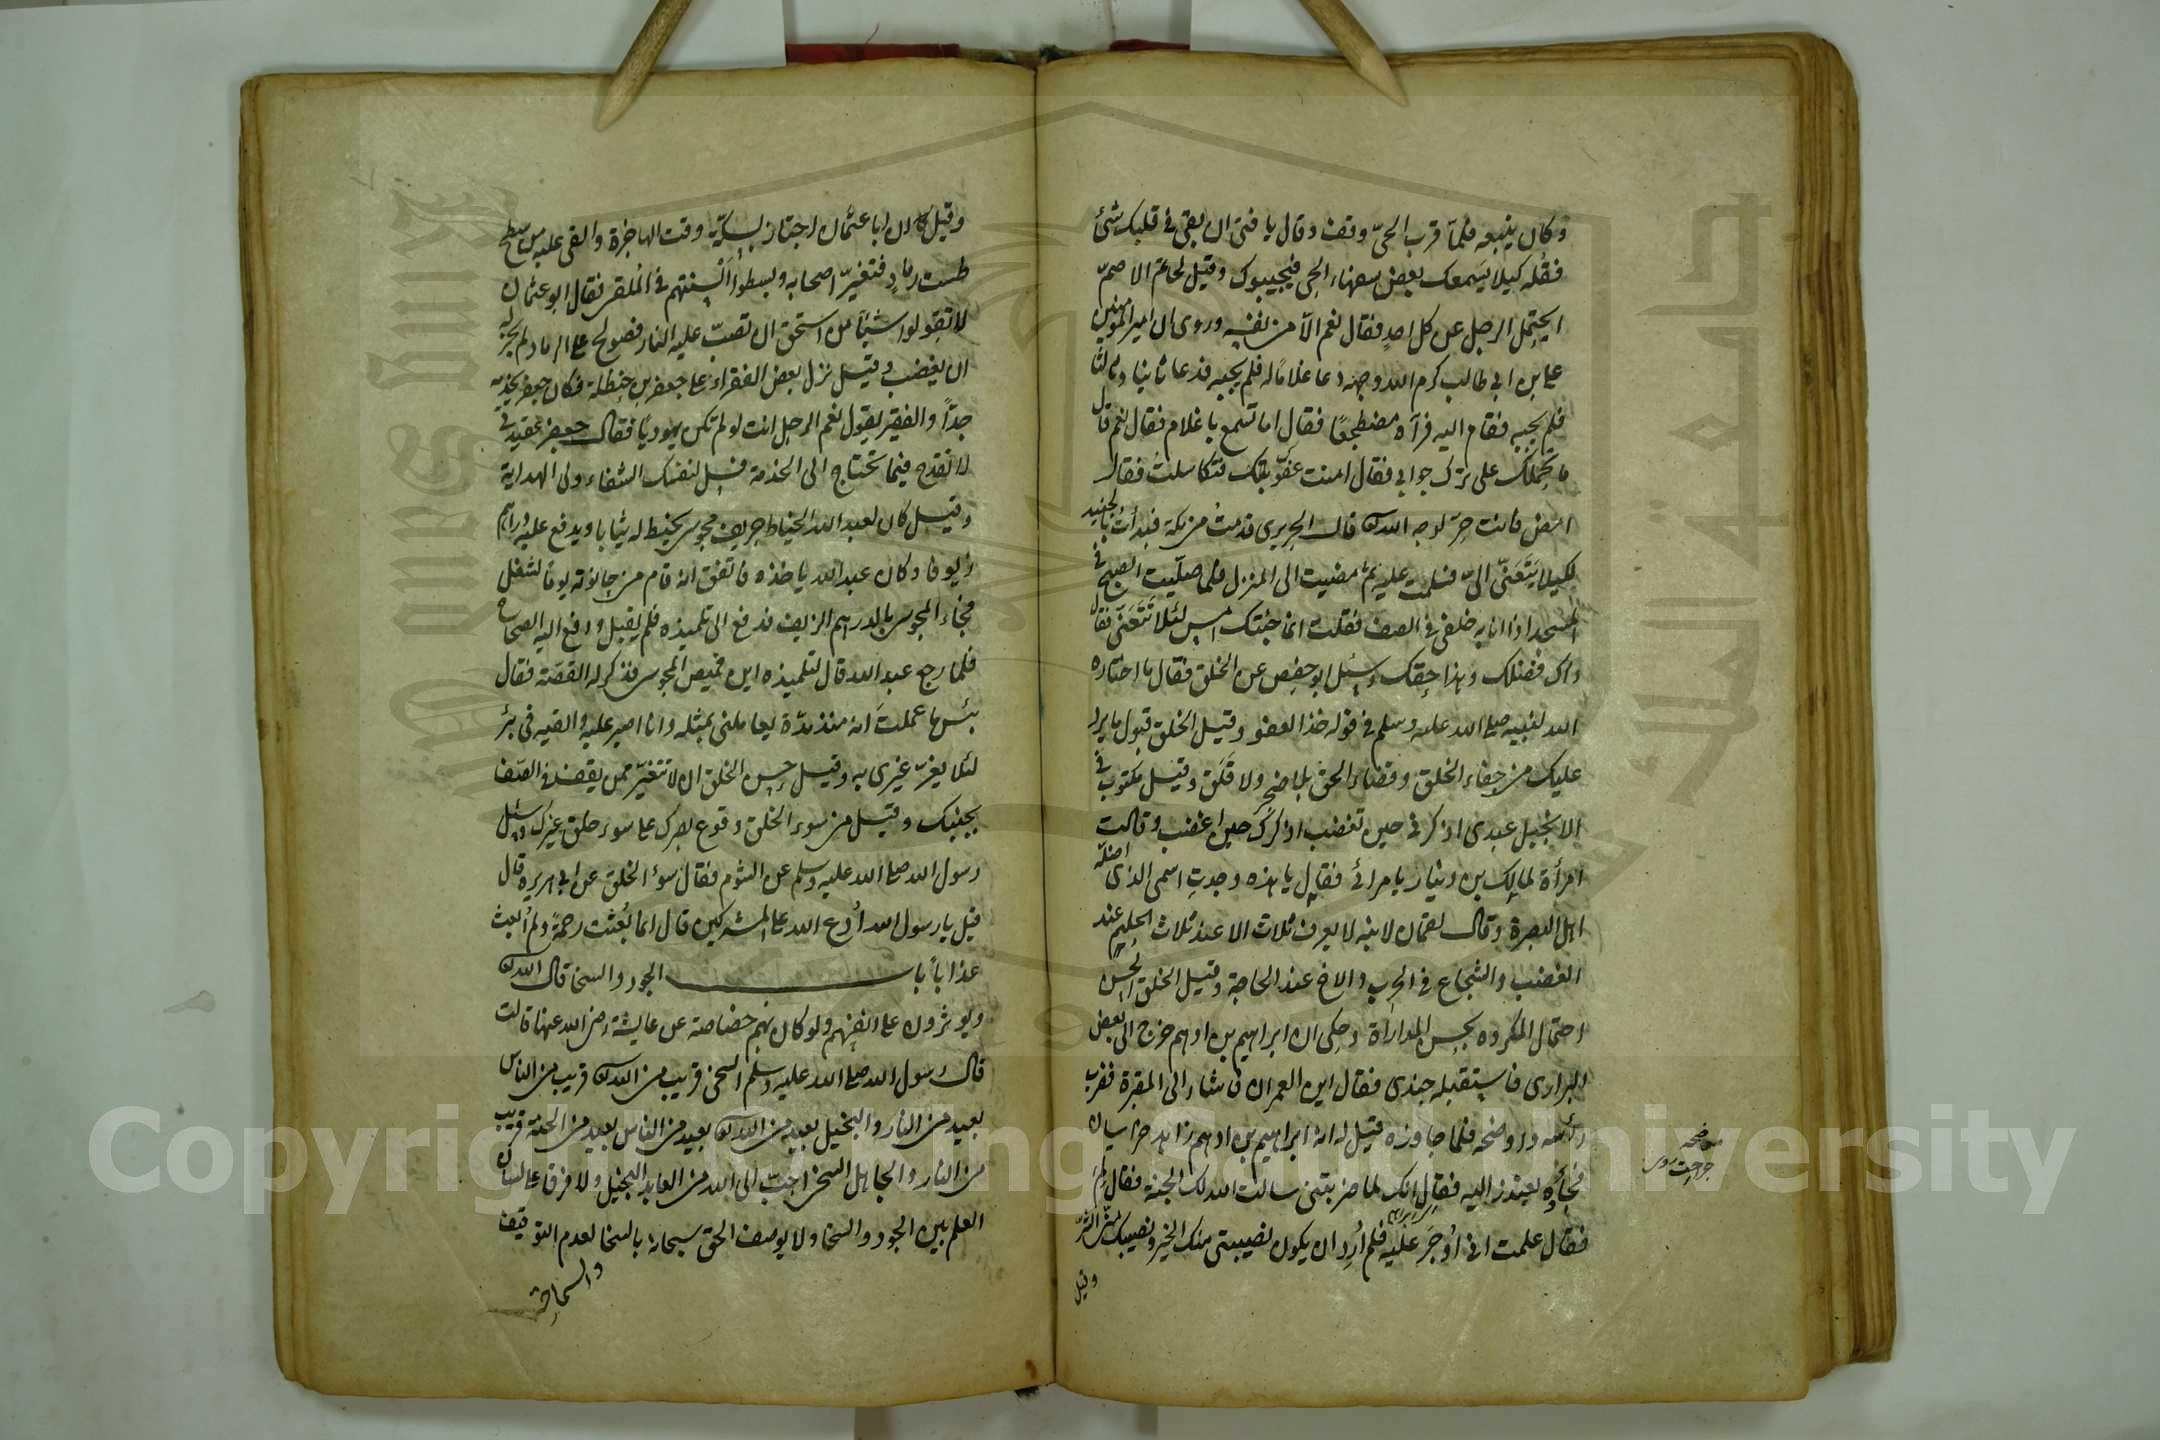 وكان يتبعه فلمّا قرب الحيّ وقف وقال يا فتى ان بقى فى قلبك شئ
فقُله كيلا يسَمعك بعض سفهاء الحى فيجيبوك وقيل لحاتم الاصمّ
ايحتمل الرجل عن كل احدٍ فقال نعم الّا من نفسه وروى ان امير المؤمنين
على بن ابي طالب كرم الله وجهه دعا غلامًا له فلم يجبه فدعا ثانيا وثالثا
فلم يجبه فقام اليه فرآه مضطجعًا فقال اما تسمع يا غلام فقال نعم قال
ما حملك على ترك جوابي فقال امنت عقوبتك فتكاسلت فقال
امض فانت حرّ لوجه الله قال الجريرى قدمت من مكة فبدأت بالجنيد
لكيلا يتعَنّى الىّ فسلمت عليه ثم مضيت الى المنزل فلما صلّيت الصبح فى
المسجد اذا انا به خلفى فى الصف فقلت انما جئتك امس لئلا تتعنّى فقال
ذاك فضلك وهذا حقك وسئل ابو حفص عن الخلق فقال ما اختاره
الله لنبيه صلى الله عليه وسلم فى قوله خذ العفو وقيل الخلق قبول ما يرد
عليك من جفاء الخلق وقضاء الحق بلا ضجر ولا قلق وقيل مكتوب فى
الانجيل عبدى اذكرنى حين تغضب اذكرك حين اغضب وقالت
امرأة لمالك بن دينار يا مرائى فقال يا هذه وجدتِ اسمى الذى اضلّه
اهل البصرة وقال لقمان لابنه لا يعرف ثلاث الا عند ثلاث الحليم عند
الغضب والشجاع فى الحرب والاخ عند الحاجة وقيل الخلق الحسن
احتمال المكروه بحسن المداراة وحكى ان ابراهيم بن ادهم خرج الى بعض
البرارى فاستقبله جندى فقال اين العمران فاشار الى المقبرة فضرب
رأسه واوضحه فلما جاوزه قيل له انه ابراهيم بن ادهم زاهد خراسان
فجاءه يعتذر اليه فقال انك لما ضربتنى سالت الله لك الجنة فقال لم
فقال علمت انى اُوجَر عليه فلم اُرِد ان يكون نصيبى منك الخير ونصيبك منى الشرّ
وقيل
موضحه
وقيل ان ابا عثمان اجتاز بسكّة وقت الهاجرة والقى عليه من سطح
طست رماد فتغيّر اصحابه وبسطوا اَلسِنتهم فى الملقى فقال ابو عثمان
لا تقولوا شيئا من استحق ان تصبّ عليه النار فصولح على الرماد لم يجز له
ان يغضب وقيل نزل بعض الفقراء على جعفر بن حنظلة فكان جعفر يخدمه
جدّاً والفقير يقول نعم الرجل انت لو لم تكن يهوديًا فقال جعفر عقيدتى
لا تقدح فيما تحتاج الى الخدمة فسل لنفسك الشفاء ولى الهداية
وقيل كان لعبد الله الخياط حريف مجوسى يخيط له ثيابا ويدفع عليه دراهم
زيوفا وكان عبد الله ياخذه فاتفق انه قام من حانوته يوما لشغل
فجاء المجوسى بالدراهم الزيف فدفع الى تلميذه فلم يقبل ودفع اليه الصحاح
فلما رجع عبد الله قال لتلميذه اين قميص المجوسى فذكر له القصّة فقال
بئس ما عملتَ انه منذ مدّة يعاملنى بمثله وانا اصبر عليه والقيه فى بئر
لئلا يغرّ غيرى به وقيل حسن الخلق ان لا تتغيّر ممن يقف فى الصّف
بجنبك وقيل من سوء الخلق وقوع بصرك على سوء خلق غيرك وسئل
رسول الله صلى الله عليه وسلم عن الشوم فقال سوء الخلق عن ابي هريرة قال
قيل يا رسول الله اُدع الله على المشركين قال انما بُعثت رحمةً ولم اُبعث
عذاباً باب الجود والسخا قال الله
ويوثرون على انفسهم ولو كان بهم خصاصة عن عايشة رضى الله عنها قالت
قال رسول الله صلى الله عليه وسلم السخى قريب من الله قريب من الناس
بعيد من النار والبخيل بعيد من الله بعيد من الناس بعيد من الجنة قريب
من النار والجاهل السخى احبّ الى الله من العابد البخيل ولا فرق على لسان
العلم بين الجود والسخا ولا يوصف الحق سبحانه بالسخا لعدم التوقيف
والسماحة
Copyright © King Saud University